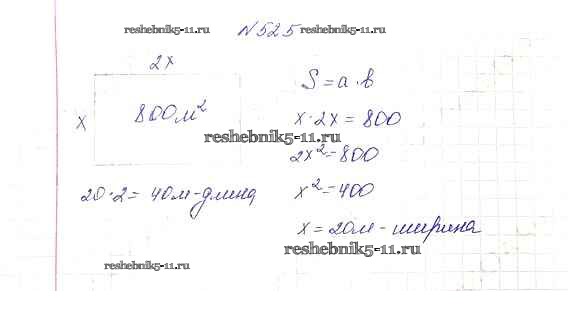 reshebnik5-11.ru
№525
reshebnik5-11.ru
2x
x
800м²
S = a · b
x · 2x = 800
reshebnik5-11.ru
2x² = 800
20 · 2 = 40м - длина
x² = 400
x = 20м - ширина
reshebnik5-11.ru
reshebnik5-11.ru